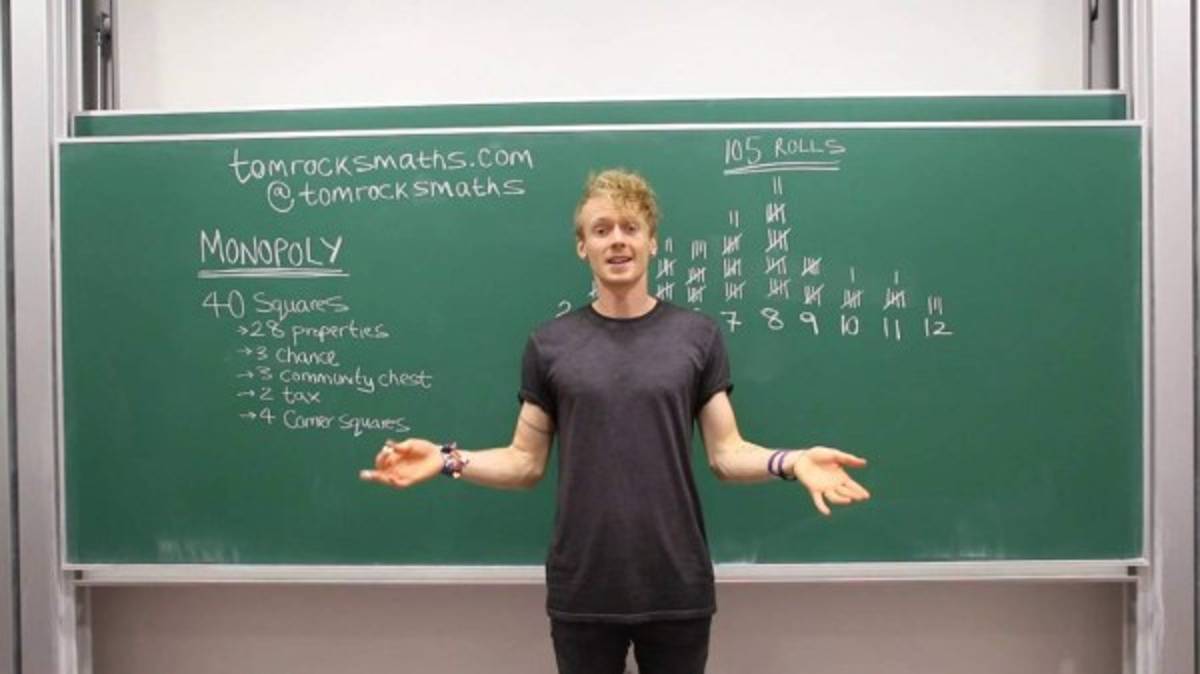 tomrocksmaths.com
@tomrocksmaths
MONOPOLY
40 Squares
→28 properties
→3 chance
→3 community chest
→2 tax
→4 Corner squares
105 ROLLS
2 7 8 9 10 11 12